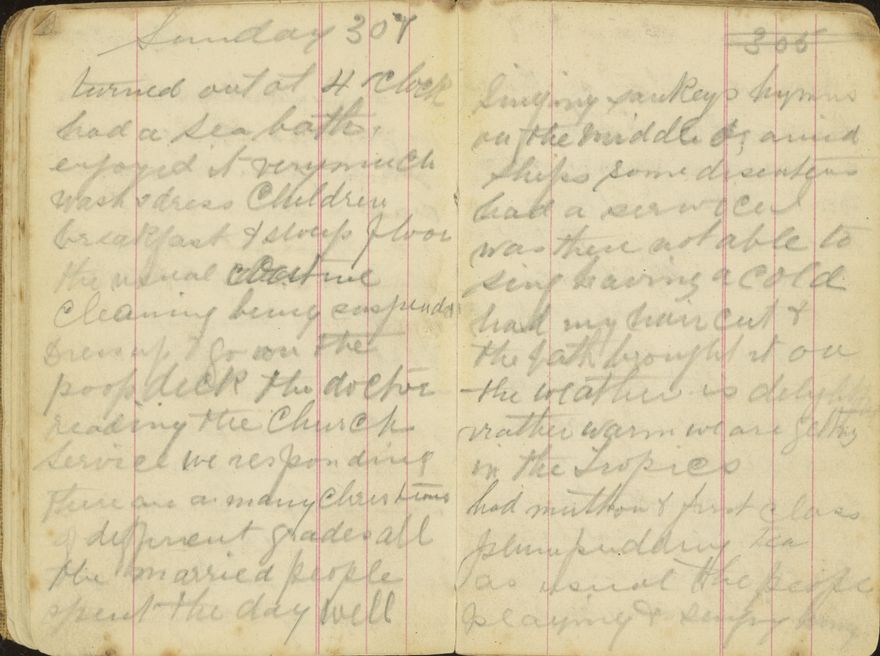 Sunday 30
turned out at 4 clock
had a Sea bath,
enjoyed it verymuch
wash & dress Children
breakfast & sweep floor
the usual
cleaning being suspended
Dress up & go on the
poop deck the doctor
reading the Church
Service we responding
there are a many Christians
of different grades all
the married people
spent the day well
305
Singing sankeys hymns
on the middle & amid
ships some disenters
had a service I
was there not able to
sing having a cold
had my hair cut &
the bath brought it on
the weather is delightful
rather warm we are getting
in the Tropics
had mutton & first class
plumpudding Tea
as usual the people
playing & singing